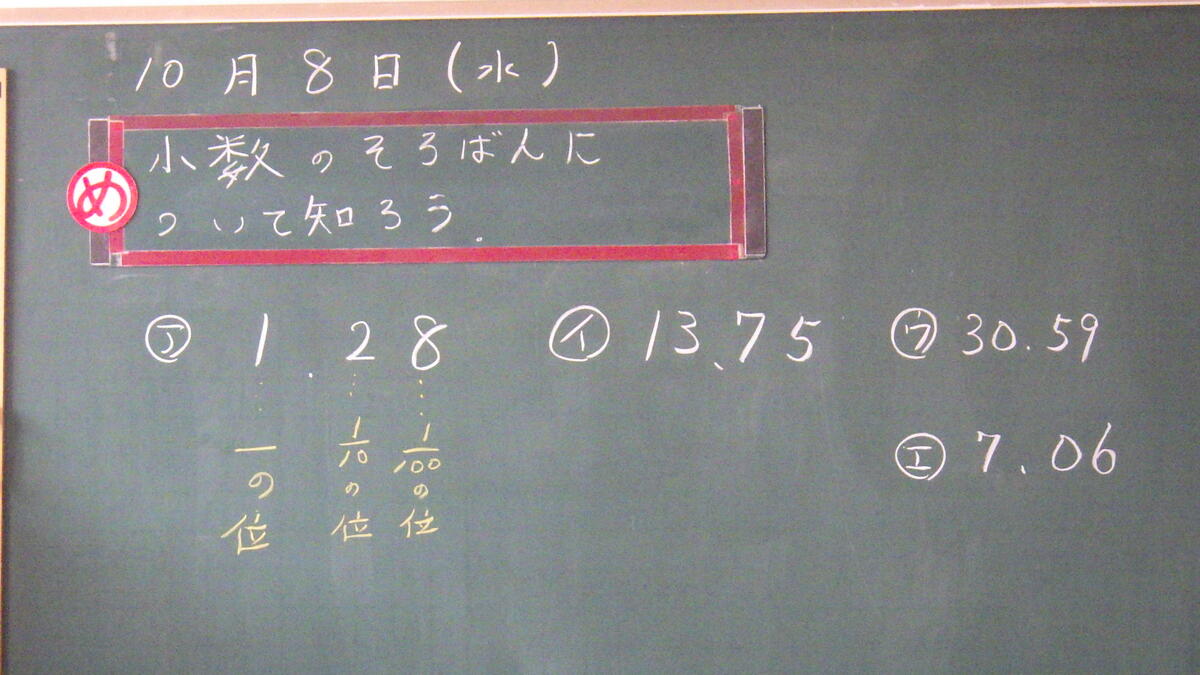 10月8日(水)
め
小数のそろばんに
ついて知ろう.
㋐ 1.28
一の位
1/10の位
1/100の位
㋑ 13.75
㋒ 30.59
㋓ 7.06